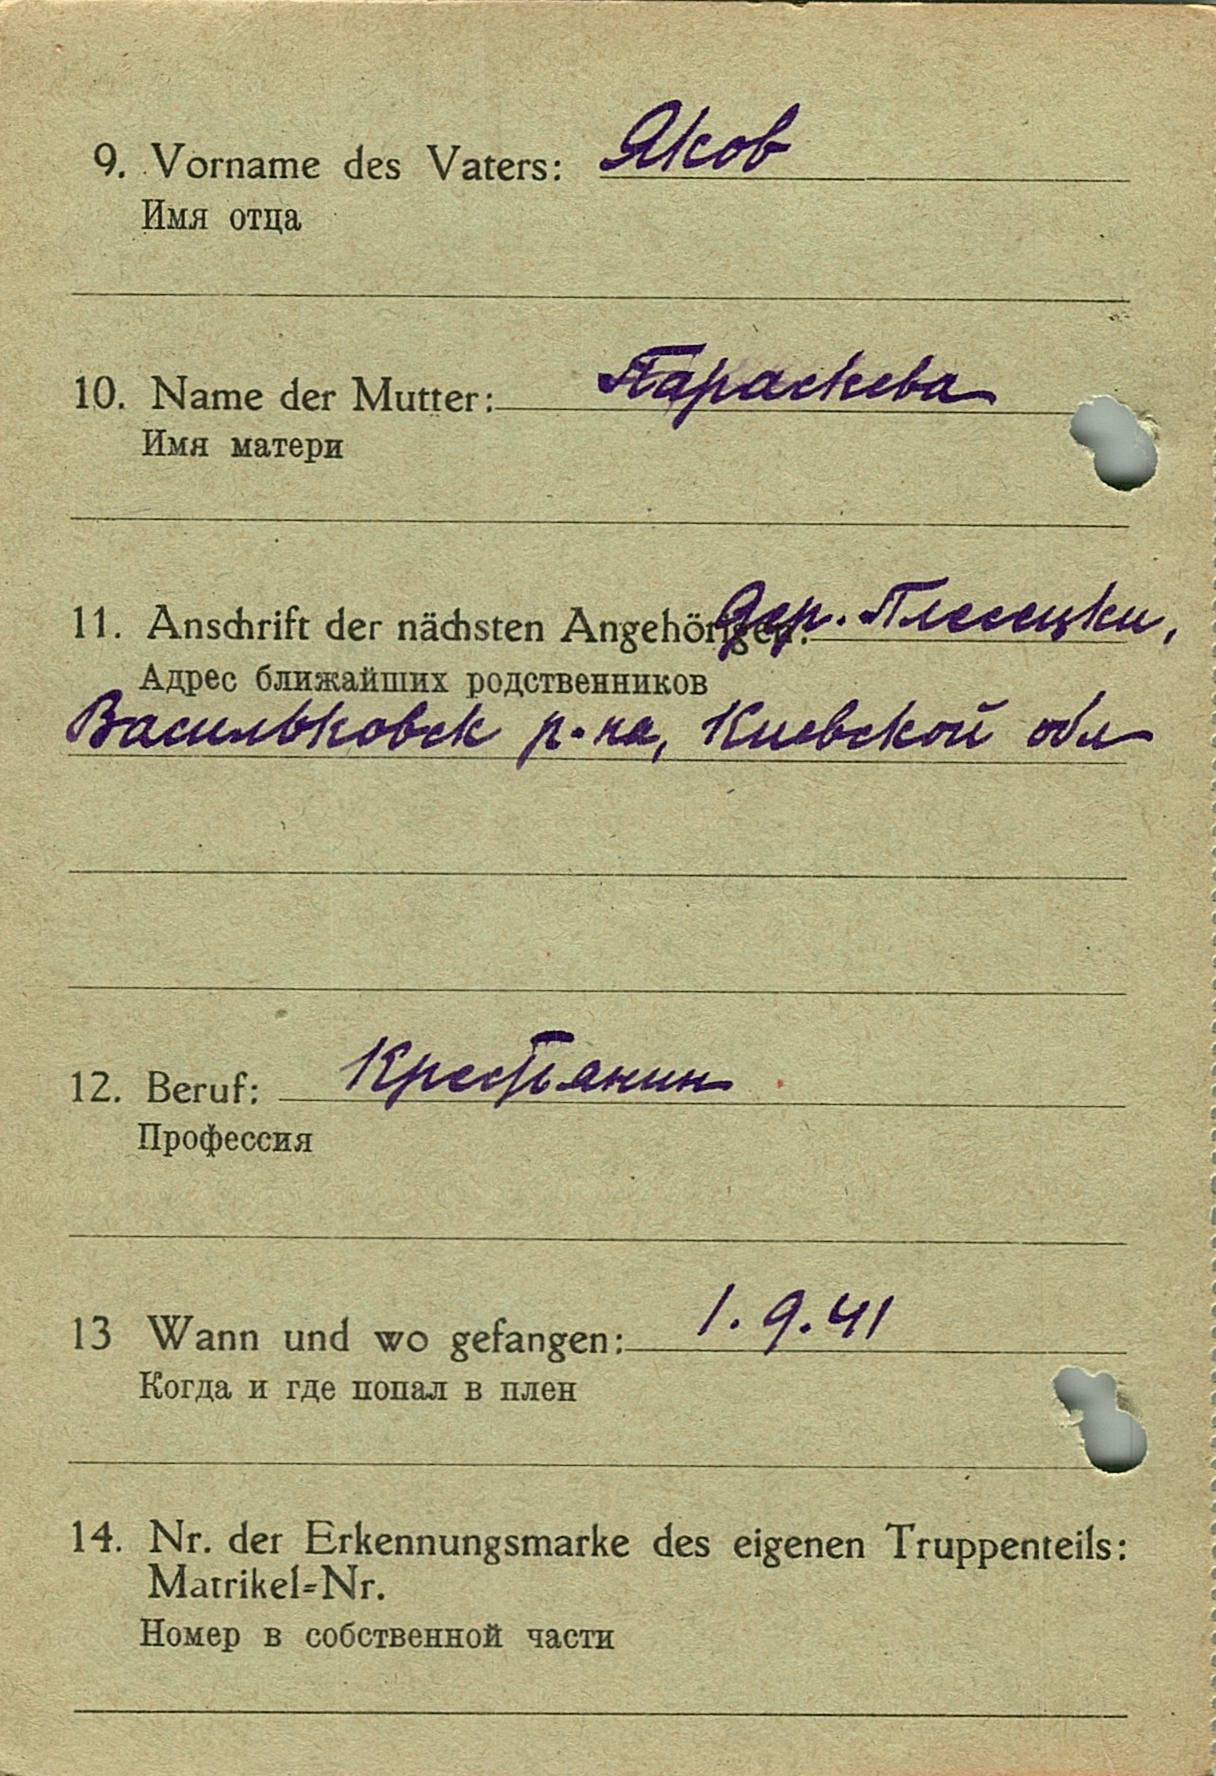 9. Vorname des Vaters: Яков
Имя отца
10. Name der Mutter: Параскева
Имя матери
11. Anschrift der nächsten Angehörigen: дер. Плесецки,
Адрес ближайших родственников
Васильковск р-на, Киевской обл
12. Beruf: Крестьянин
Профессия
13 Wann und wo gefangen: 1.9.41
Когда и где попал в плен
14. Nr. der Erkennungsmarke des eigenen Truppenteils:
Matrikel-Nr.
Номер в собственной части